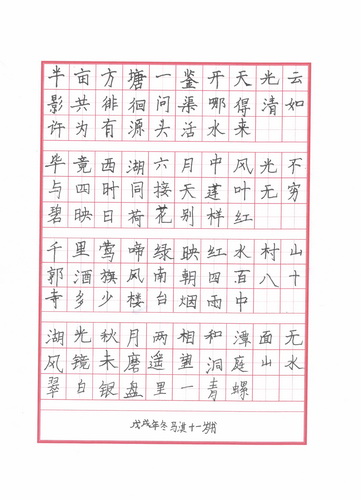 半亩方塘一鉴开天光云
影共徘徊问渠哪得清如
许为有源头活水来
毕竟西湖六月中风光不
与四时同接天莲叶无穷
碧映日荷花别样红
千里莺啼绿映红水村山
郭酒旗风南朝四百八十
寺多少楼台烟雨中
湖光秋月两相和潭面无
风镜未磨遥望洞庭山水
翠白银盘里一青螺
戊戌年冬马浚十一岁书